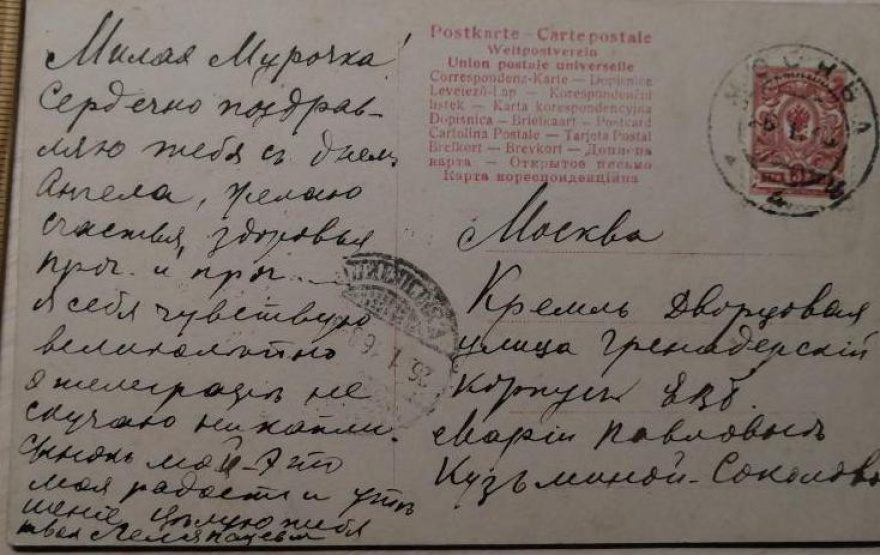 Милая Мурочка!
Сердечно поздрав-
ляю тебя съ днемъ
Ангела, желаю
счастья, здоровья
проч. и проч....
Я себя чувствую
великолѣпно
о телеграфѣ не
скучаю ни капли.
мой - это
моя радость и утѣ
шеніе, цѣлую тебя
твоя Леля
Postkarte - Carte postale
Weltpostverein
Union postale universelle
Correspondenz-Karte — Dopisnice
Levelező-Lap — Korespondenční
lístek — Karta korespondencyjna
Dopisnica — Briefkaart — Postcard
Cartolina Postale — Tarjeta Postal
Brefkort — Brevkort — Дописна
карта — Открытое письмо
Карта кореспонденційна
МОСКВА
Москва
Кремль Дворцовая
улица Гренадерскій
Корпусъ ЕВБ.
Маріи Павловнѣ
Кузьминой-Соколово